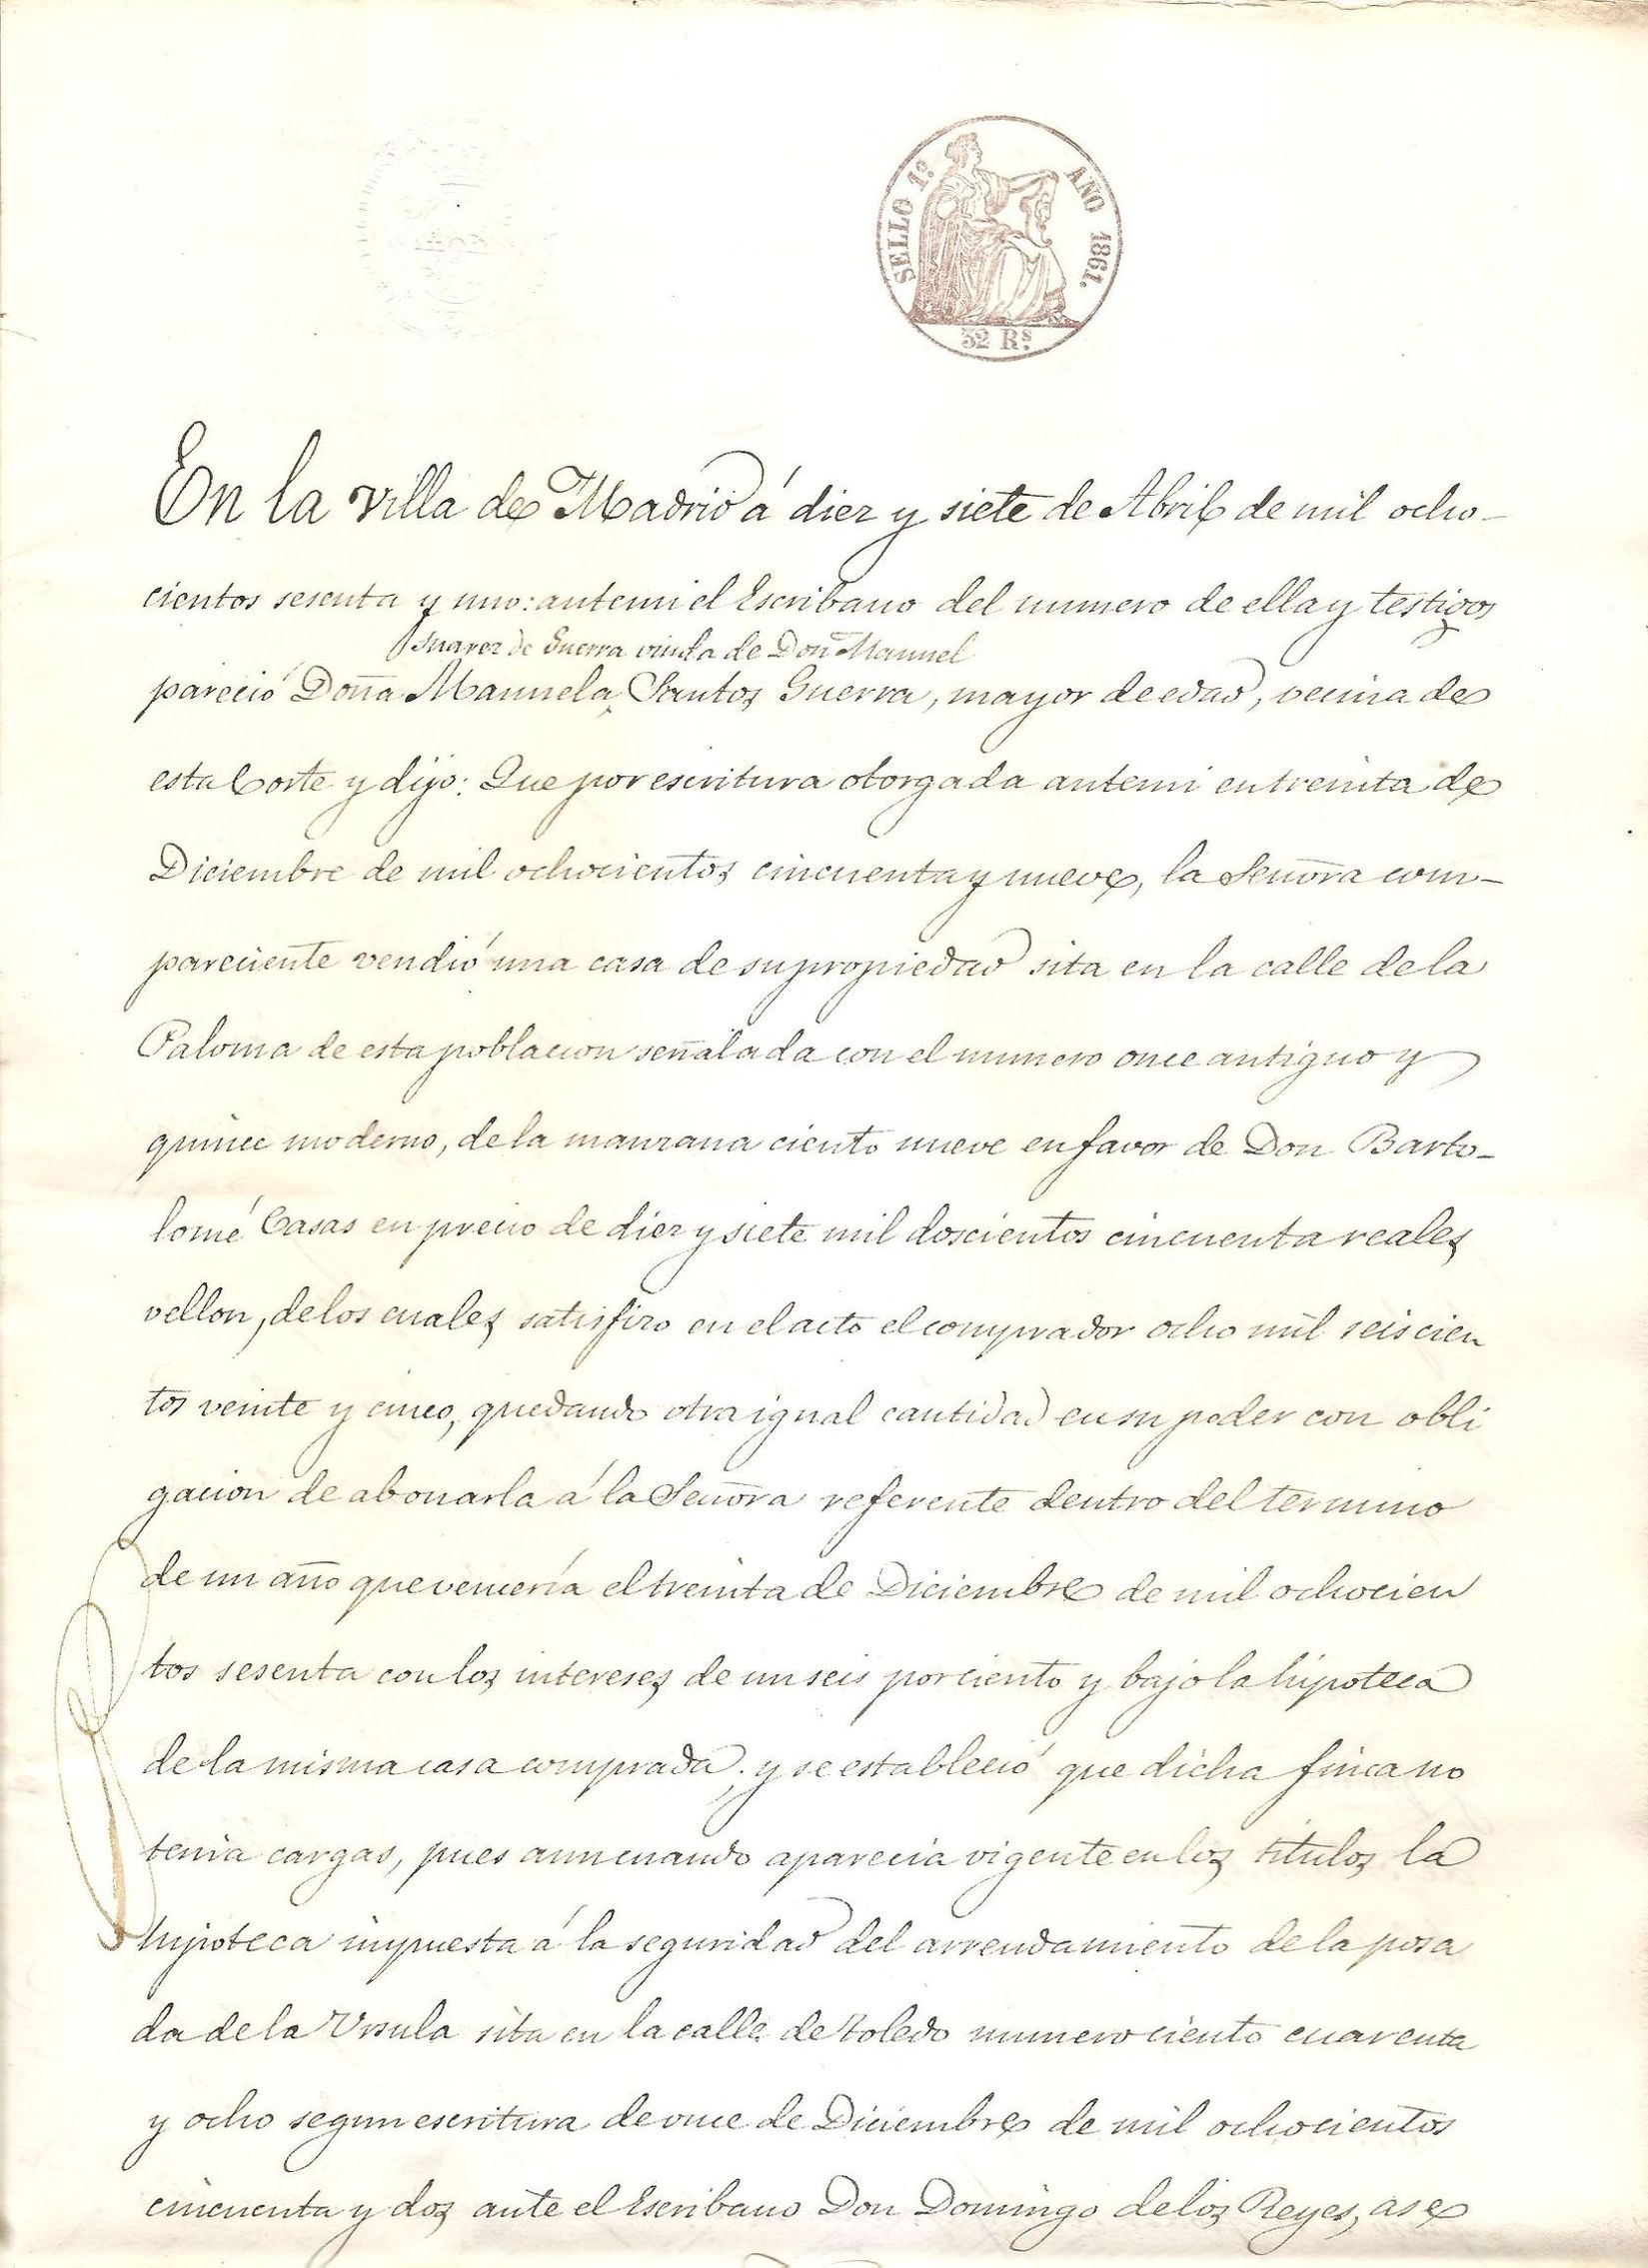 SELLO 1º AÑO 1861.
32 Rs.
En la villa de Madrid á diez y siete de Abril de mil ocho-
cientos sesenta y uno: antemi el Escribano del numero de ella y testigos
Suarez de Guerra viuda de Don Manuel
pareció Doña Manuela Santos Guerra, mayor de edad, vecina de
esta Corte y dijo: Que por escritura otorgada antemi en treinta de
Diciembre de mil ochocientos cincuenta y nueve, la Señora com-
pareciente vendió una casa de su propiedad sita en la calle de la
Paloma de esta poblacion señalada con el numero once antiguo y
quince moderno, de la manzana ciento nueve en favor de Don Barto-
lomé Casas en precio de diez y siete mil doscientos cincuenta reales
vellon, de los cuales satisfizo en el acto el comprador ocho mil seiscien
tos veinte y cinco, quedando otra igual cantidad en su poder con obli
gacion de abonarla á la Señora referente dentro del termino
de un año que venceria el treinta de Diciembre de mil ochocien
tos sesenta con los intereses de un seis por ciento y bajo la hipoteca
de la misma casa comprada; y se estableció que dicha finca no
tenia cargas, pues aun cuando aparecia vigente en los titulos la
hipoteca impuesta á la seguridad del arrendamiento de la posa
da de la Ursula sita en la calle de Toledo numero ciento cuarenta
y ocho segun escritura de once de Diciembre de mil ochocientos
cincuenta y dos ante el Escribano Don Domingo de los Reyes, ase